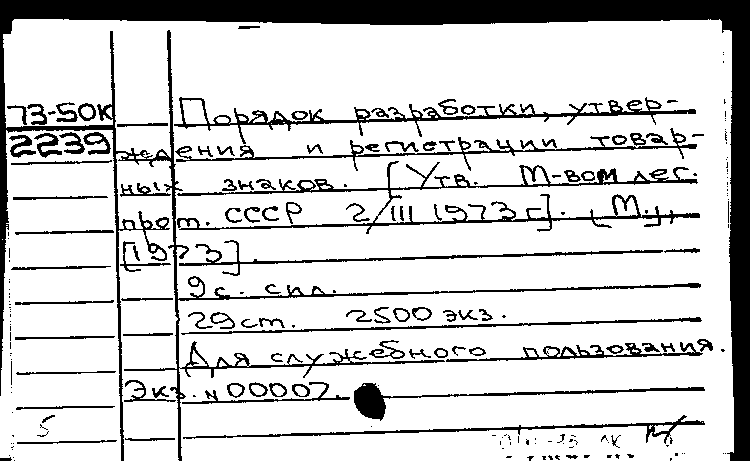 73-50К
2239
Порядок разработки, утвер-
ждения и регистрации товар-
ных знаков. [Утв. М-вом лес.
пром. СССР 2/III 1973 г]. [М.],
[1973].
9 с. сил.
29 см. 2500 экз.
Для служебного пользования.
Экз. N 00007.
5